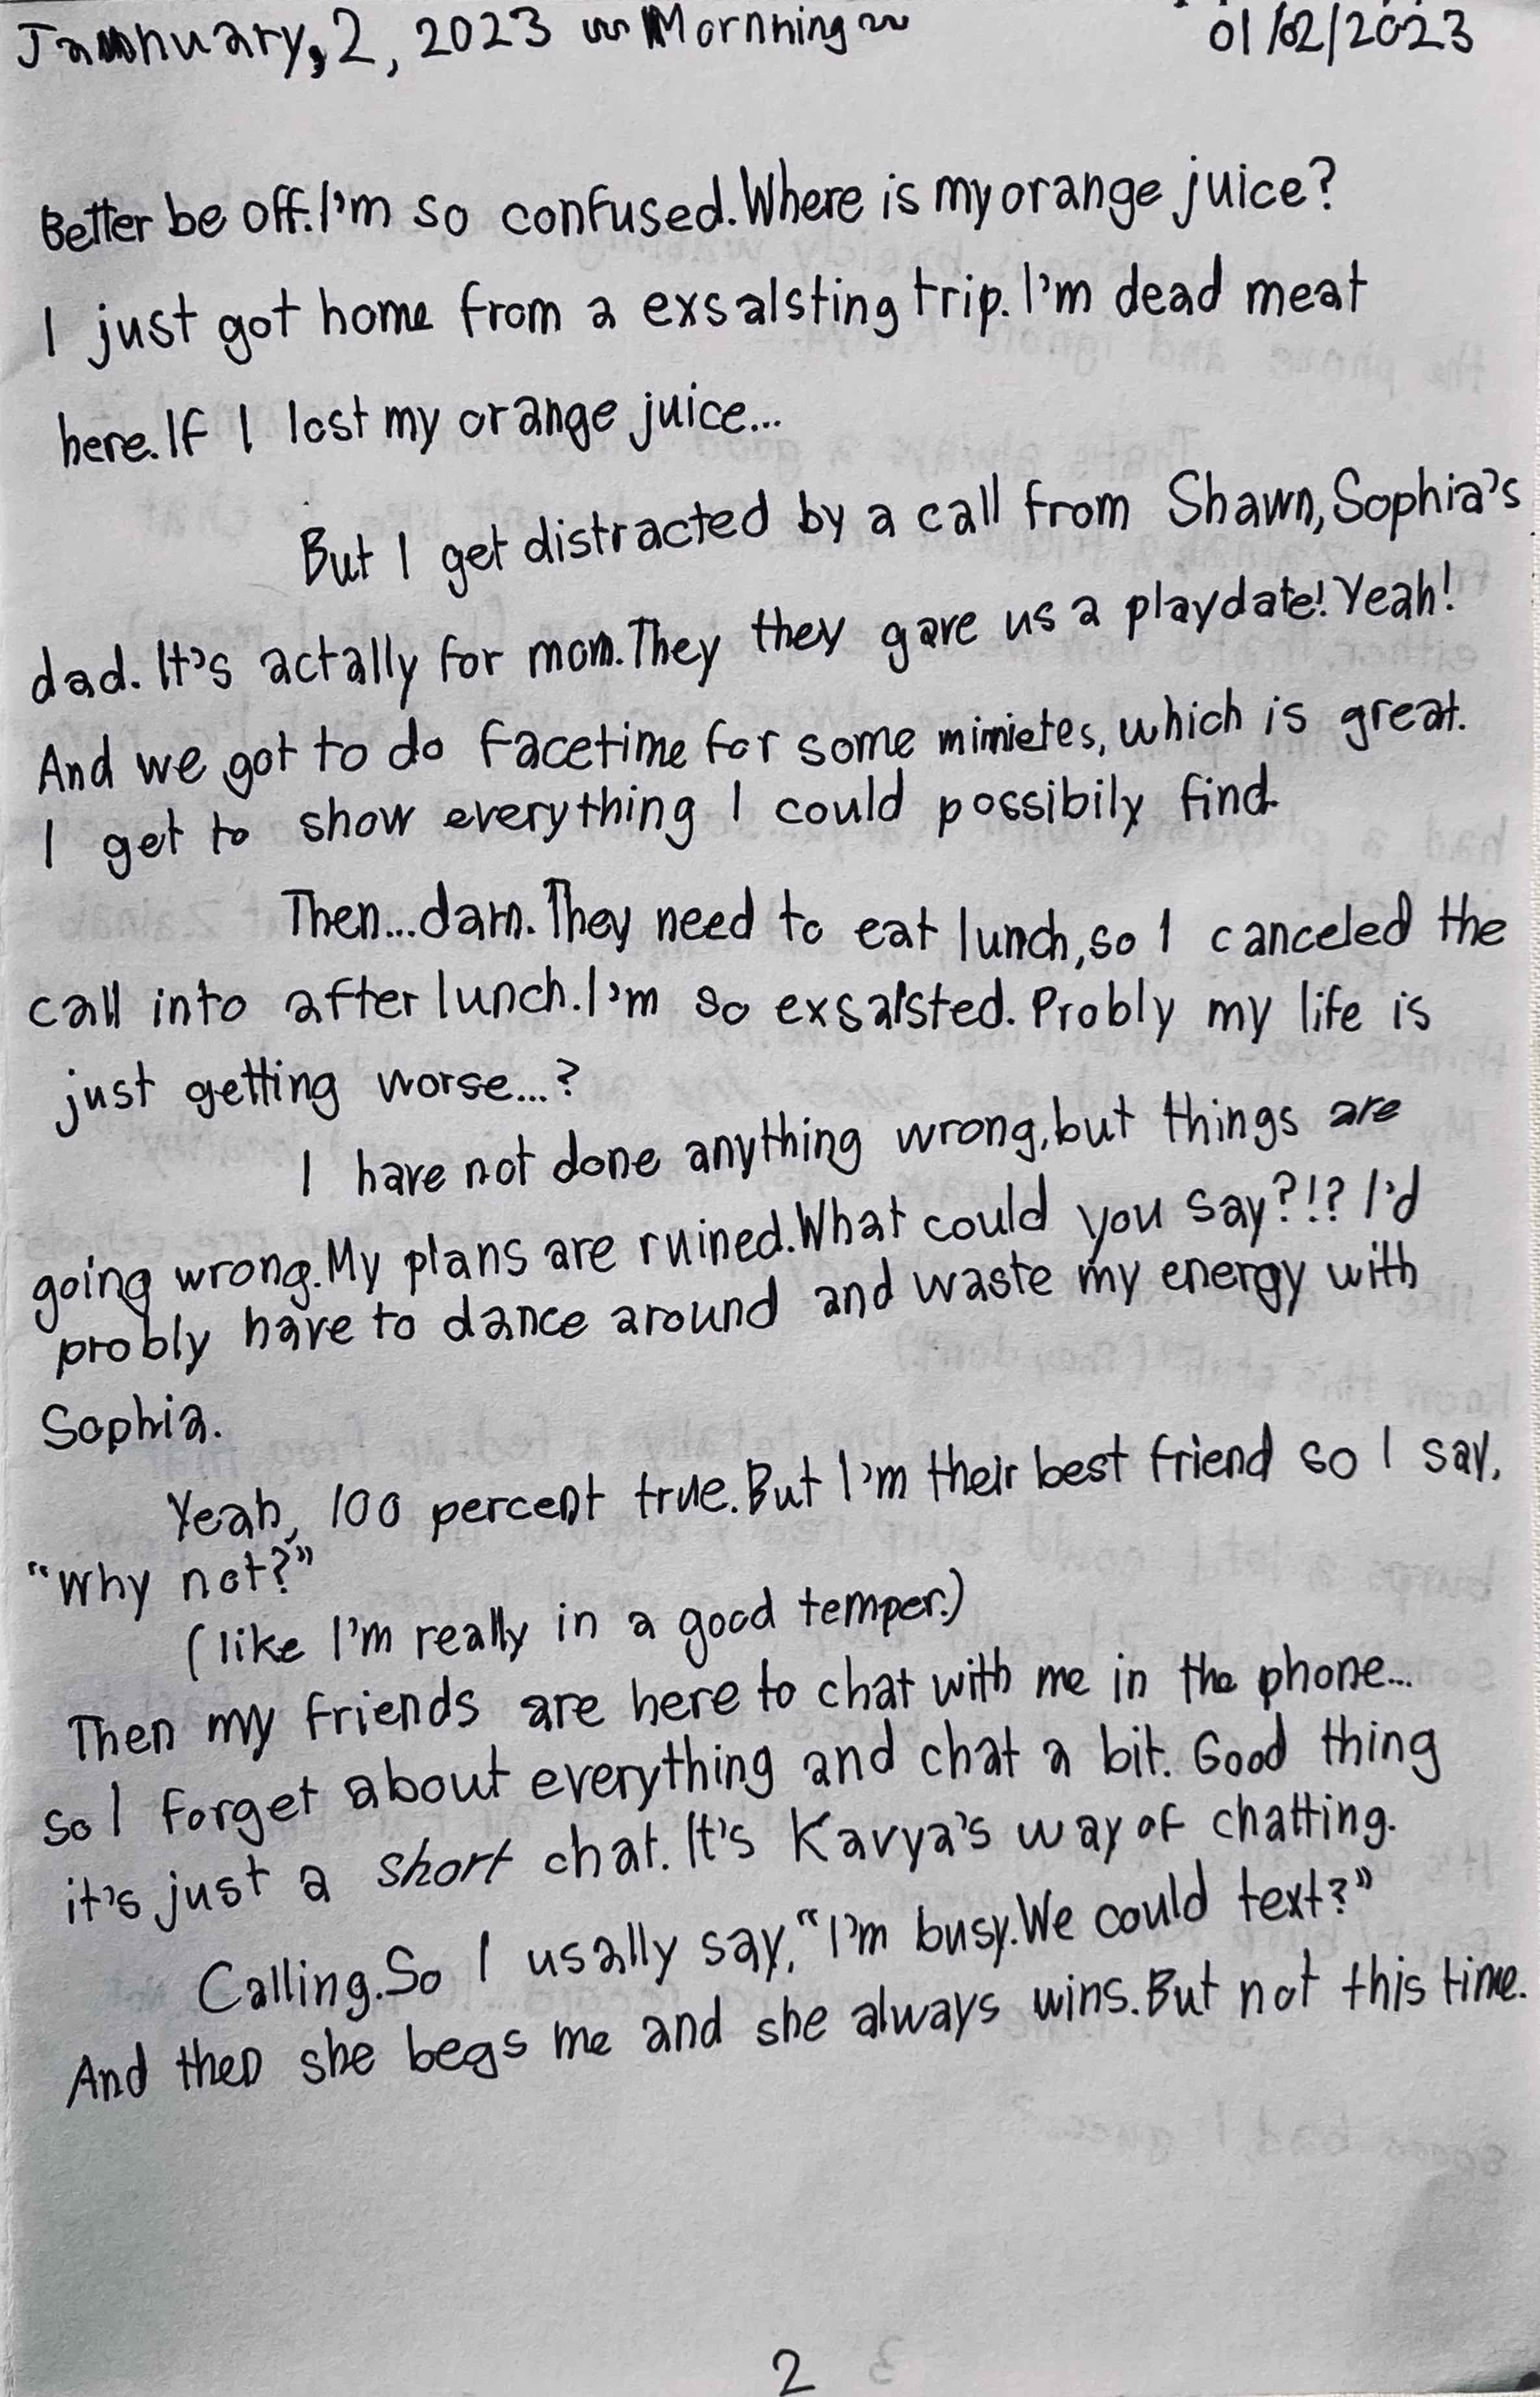 January, 2, 2023 ~ Mornning ~ 01/02/2023
Better be off. I'm so confused. Where is my orange juice?
I just got home from a exsalsting trip. I'm dead meat
here. If I lost my orange juice...
But I get distracted by a call from Shawn, Sophia's
dad. It's actally for mom. They they gave us a playdate! Yeah!
And we got to do facetime for some mimietes, which is great.
I get to show everything I could possibily find.
Then... darn. They need to eat lunch, so I canceled the
call into after lunch. I'm so exsalsted. Probly my life is
just getting worse...?
I have not done anything wrong, but things are
going wrong. My plans are ruined. What could you say?!? I'd
probly have to dance around and waste my energy with
Sophia.
Yeah, 100 percent true. But I'm their best friend so I say,
"Why not?"
(like I'm really in a good temper.)
Then my friends are here to chat with me in the phone...
so I forget about everything and chat a bit. Good thing
it's just a short chat. It's Kavya's way of chatting.
Calling. So I usally say, "I'm busy. We could text?"
And then she begs me and she always wins. But not this time.
2